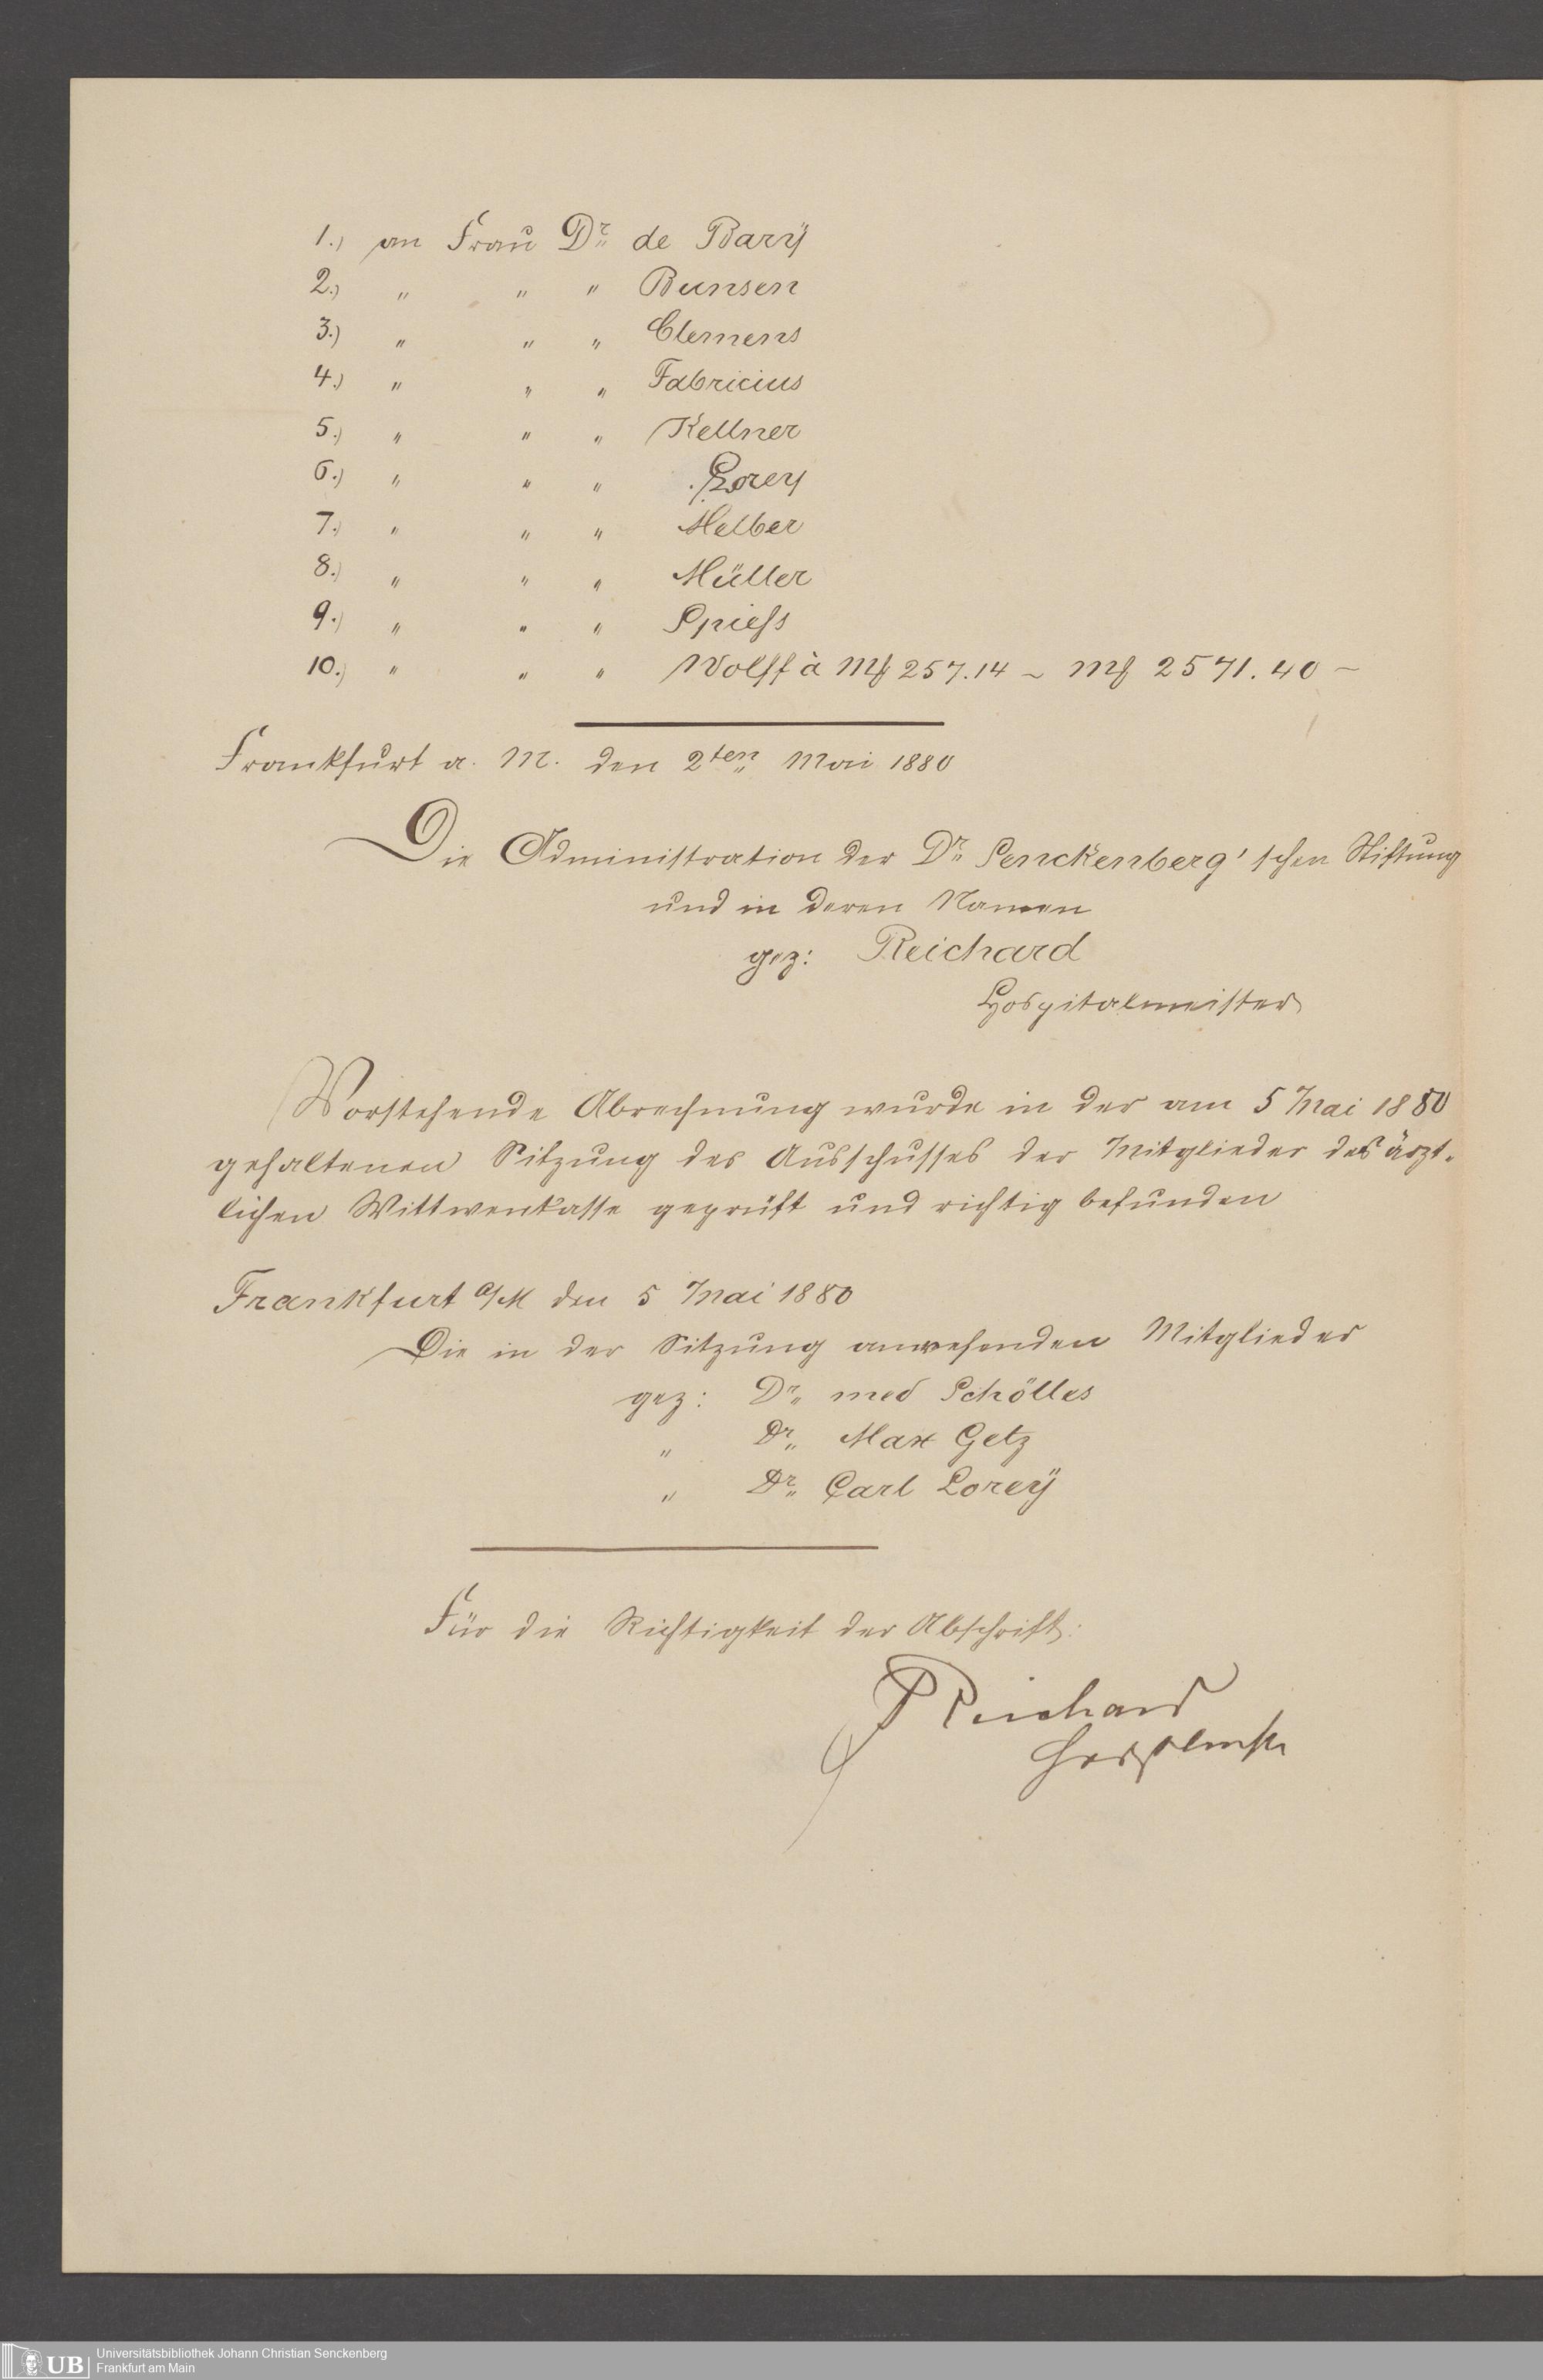 1.) an Frau Dr. de Barÿ
2.) " " " Bunsen
3.) " " " Clemens
4.) " " " Fabricius
5.) " " " Kellner
6.) " " " Lorey
7.) " " " Melber
8.) " " " Müller
9.) " " " Spiess
10.) " " " Wolff à Mk 257.14 ~ Mk 2571.40 ~
Frankfurt a. M. den 2ten Mai 1880
Die Administration der Dr. Senckenberg'schen Stiftung
und in deren Namen
gez: Reichard
Hospitalmeister
Vorstehende Abrechnung wurde in der am 5 Mai 1880
gehaltenen Sitzung des Ausschusses der Mitglieder der ärzt-
lichen Wittwenkasse geprüft und richtig befunden
Frankfurt a/M den 5 Mai 1880
Die in der Sitzung anwesenden Mitglieder
gez: Dr. med Schölles
" Dr. Max Getz
" Dr. Carl Loreÿ
Für die Richtigkeit der Abschrift:
Reichard
UB Universitätsbibliothek Johann Christian Senckenberg
Frankfurt am Main